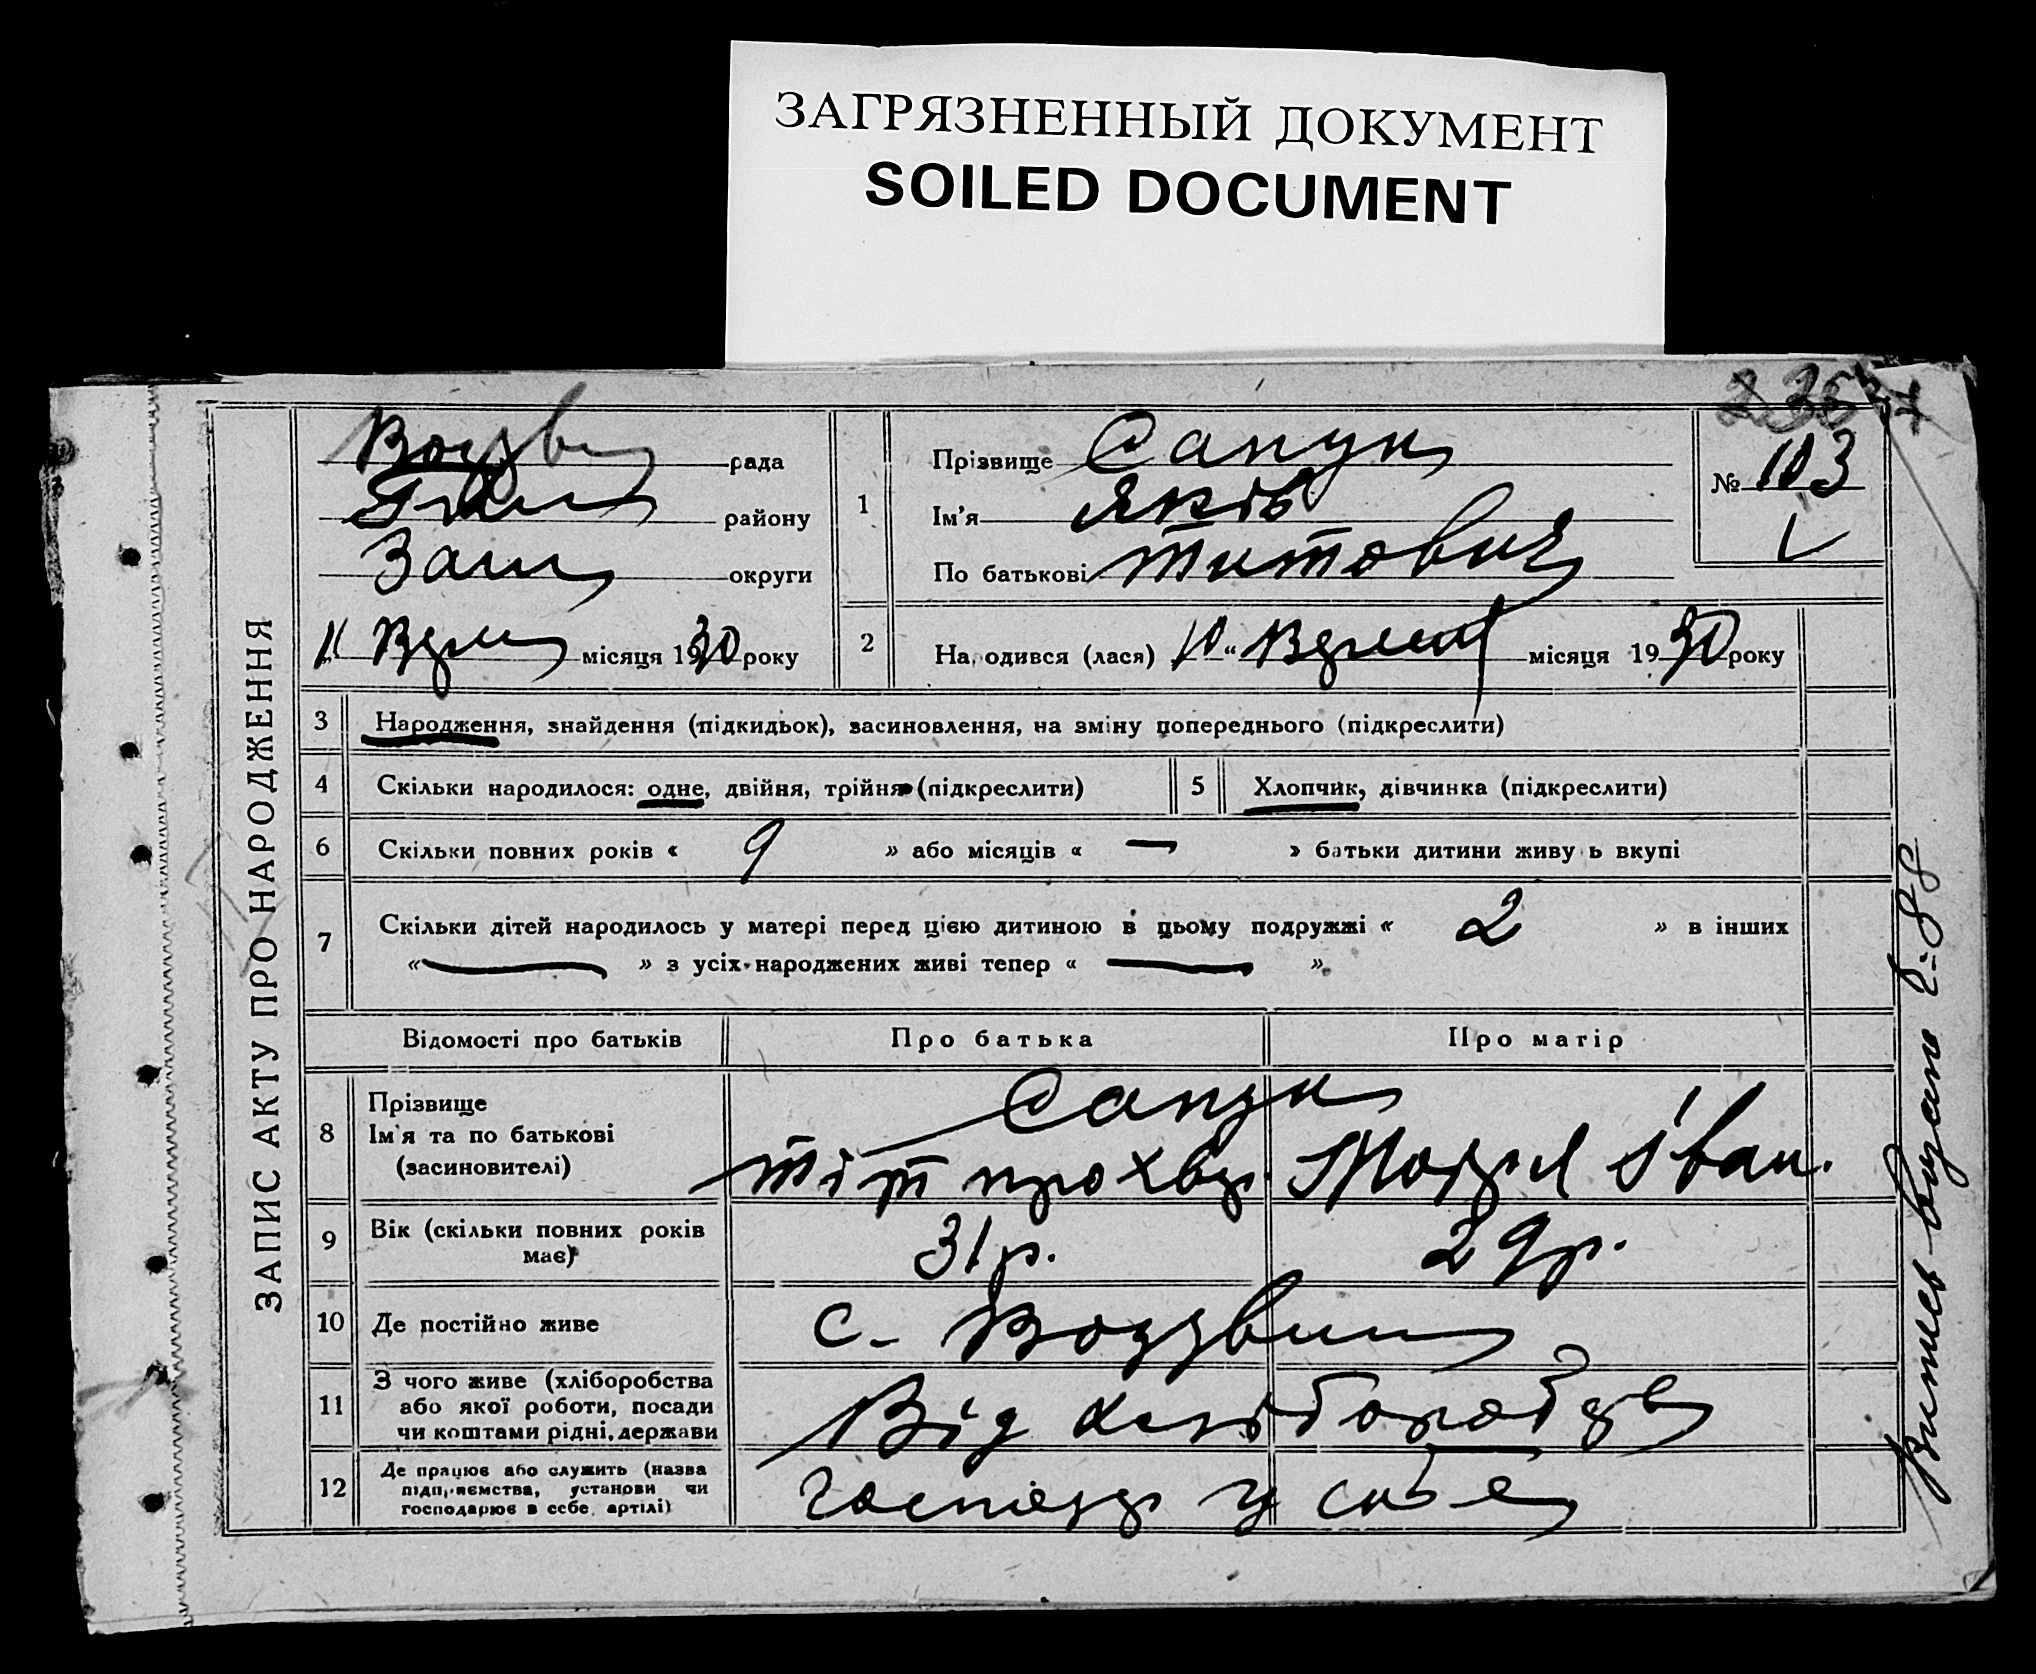 ЗАГРЯЗНЕННЫЙ ДОКУМЕНТ
SOILED DOCUMENT
ЗАПИС АКТУ ПРО НАРОДЖЕННЯ
рада
району
округи
11 місяця 1930 року
1
Прізвище Сапун
Ім'я Яків
По батькові Титович
№ 103
2
Народився (лася) 10 " місяця 1930 року
3 Народження, знайдення (підкидьок), засиновлення, на зміну попереднього (підкреслити)
4 Скільки народилося: одне, двійня, трійня (підкреслити)
5 Хлопчик, дівчинка (підкреслити)
6 Скільки повних років « 9 » або місяців « — » батьки дитини живуть вкупі
7 Скільки дітей народилось у матері перед цією дитиною в цьому подружжі « 2 » в інших
« — » з усіх народжених живі тепер « — »
Відомості про батьків Про батька Про матір
8 Прізвище
Ім'я та по батькові
(засиновителі)
Сапун
Тіт
Іван.
9 Вік (скільки повних років
має)
31 р. 29 р.
10 Де постійно живе с. Воздвиж
11 З чого живе (хліборобства
або якої роботи, посади
чи коштами рідні, держави
Від хліборобств
12 Де працює або служить (назва
підприємства, установи чи
господарює в себе, артілі)
у себе